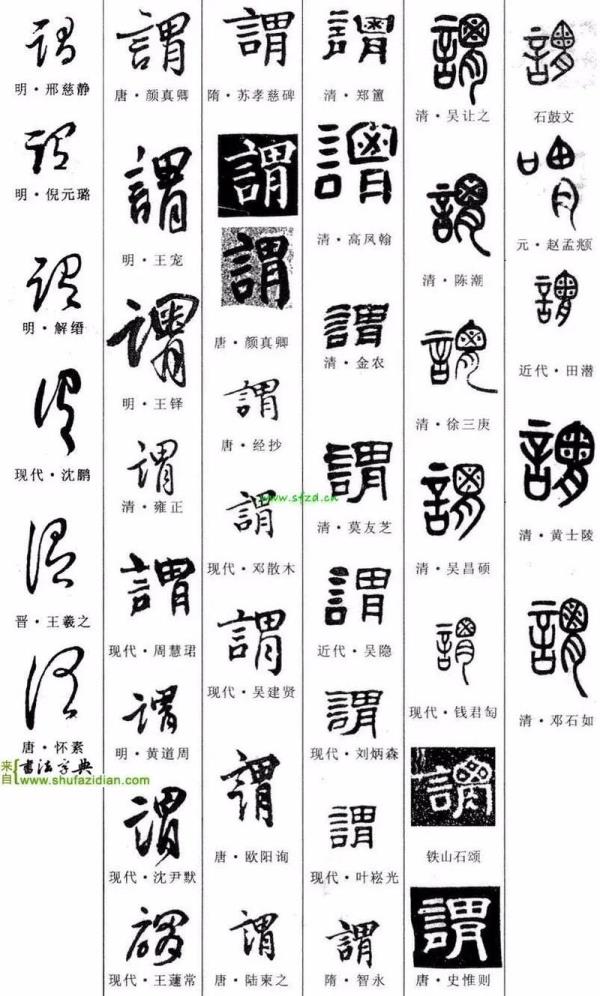 謂
明·邢慈静
謂
明·倪元璐
謂
明·解缙
謂
现代·沈鹏
謂
晋·王羲之
謂
唐·怀素
来自 书法字典
www.shufazidian.com
謂
唐·颜真卿
謂
明·王宠
謂
明·王铎
謂
清·雍正
謂
现代·周慧珺
謂
明·黄道周
謂
现代·沈尹默
謂
现代·王蘧常
謂
隋·苏孝慈碑
謂
謂
唐·颜真卿
謂
唐·经抄
謂
现代·邓散木
謂
现代·吴建贤
謂
唐·欧阳询
謂
唐·陆柬之
謂
清·郑簠
謂
清·高凤翰
謂
清·金农
謂
www.sfzd.cn
清·莫友芝
謂
近代·吴隐
謂
现代·刘炳森
謂
现代·叶崧光
謂
隋·智永
謂
清·吴让之
謂
清·陈潮
謂
清·徐三庚
謂
清·吴昌硕
謂
现代·钱君匋
謂
铁山石颂
謂
唐·史惟则
謂
石鼓文
喟
元·赵孟頫
謂
近代·田潜
謂
清·黄士陵
謂
清·邓石如